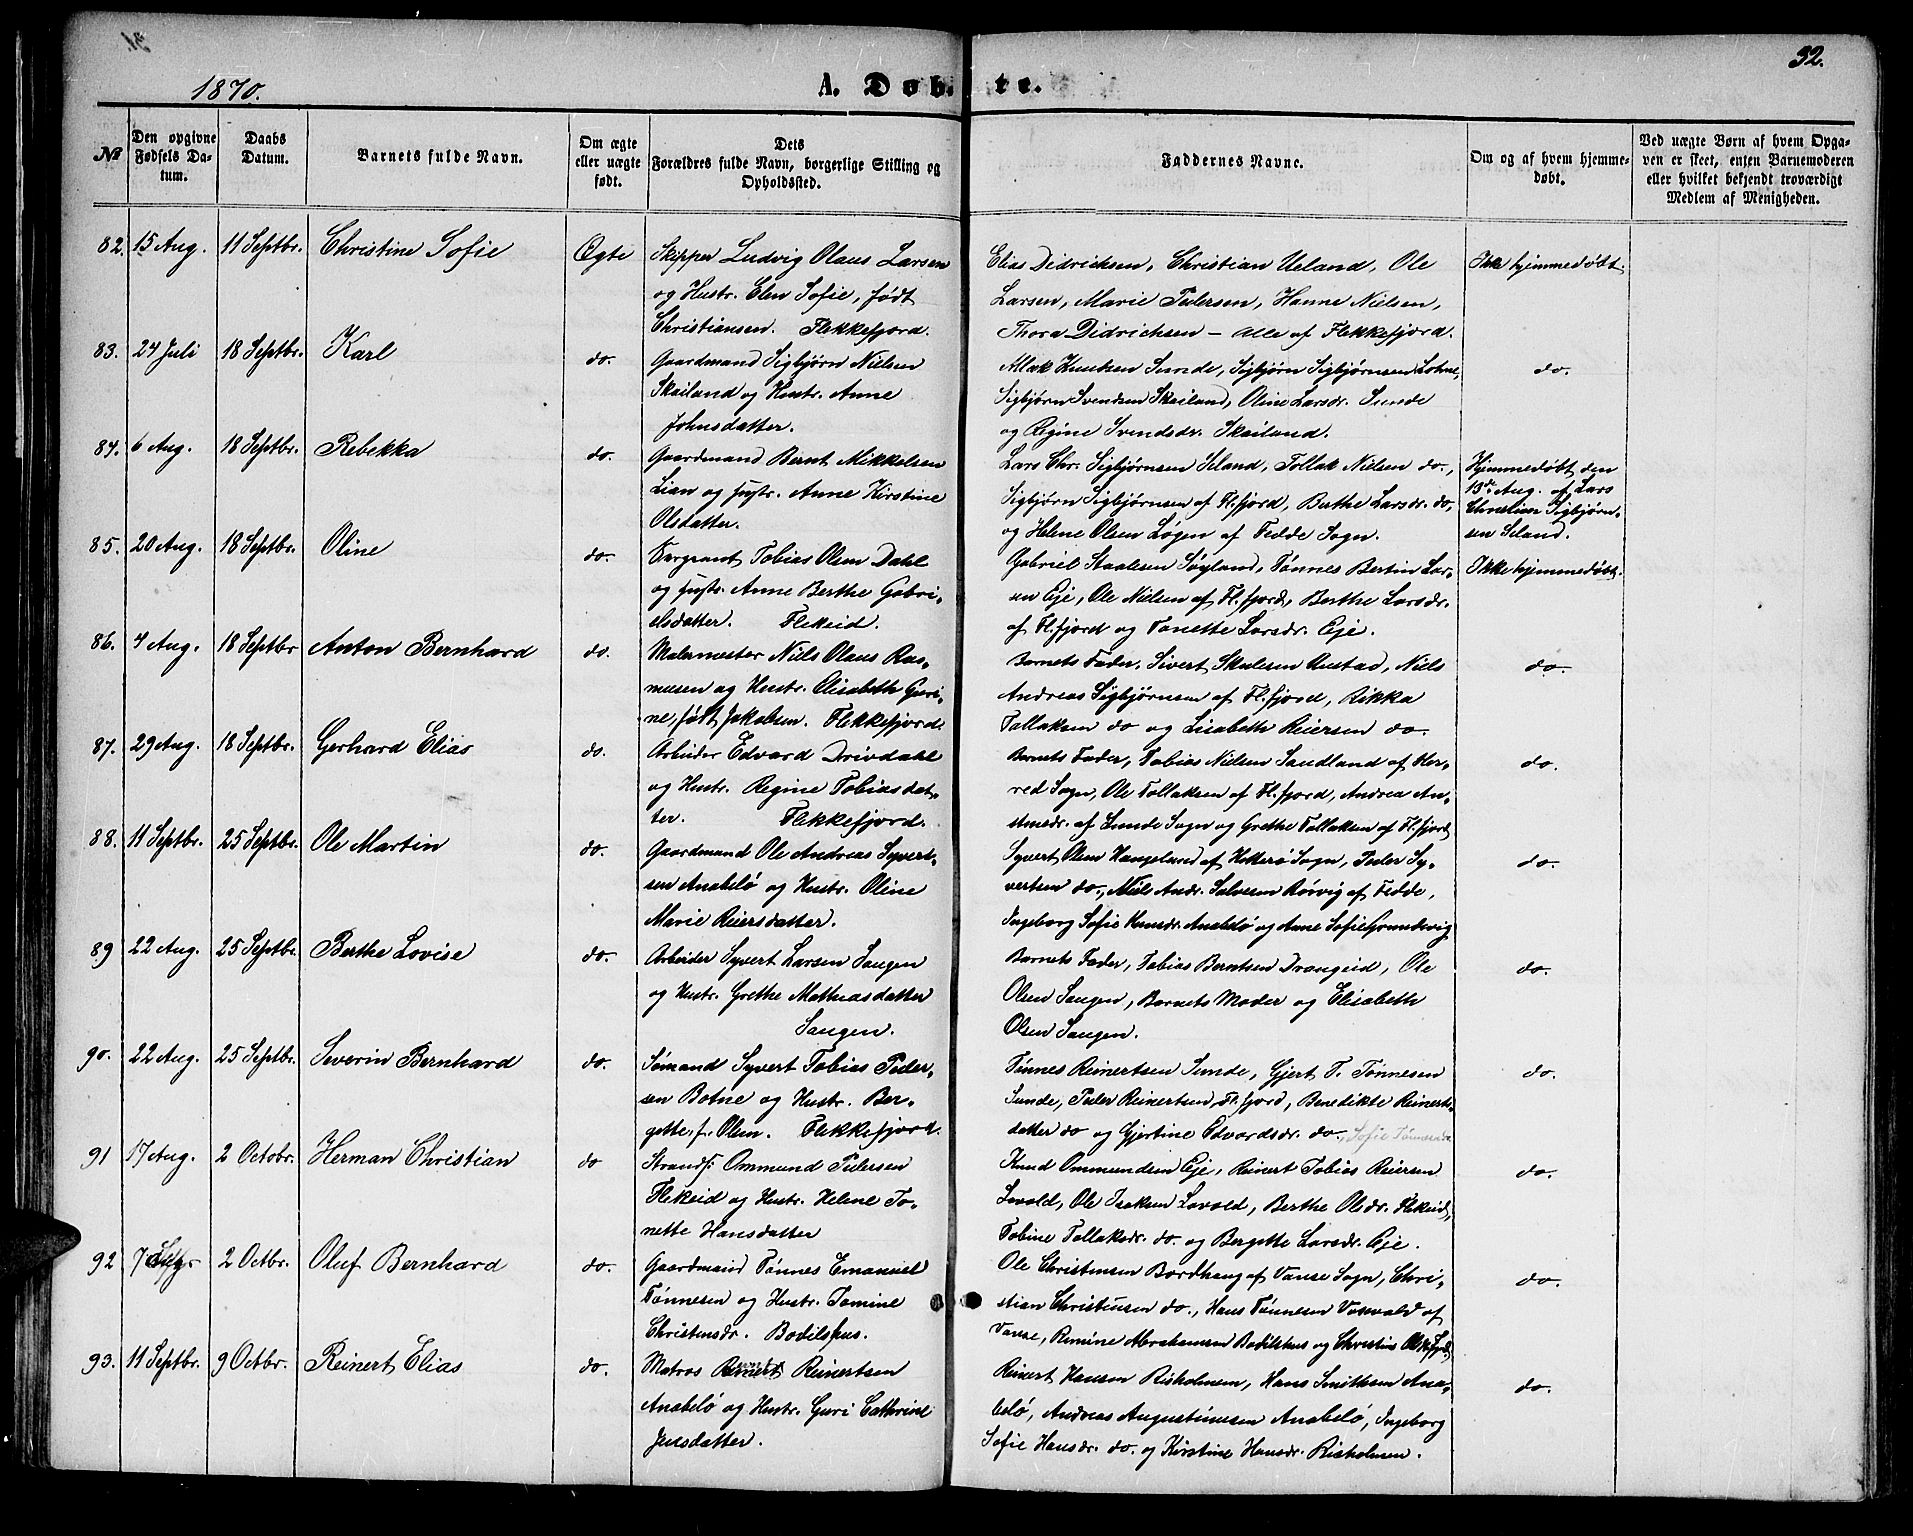 32.
1870.
A. Døbte.
№
Den opgivne Fødsels Datum.
Daabs Datum.
Barnets fulde Navn.
Om ægte eller uægte født.
Dets Forældres fulde Navn, borgerlige Stilling og Opholdssted.
Faddernes Navne.
Om og af hvem hjemmedøbt.
Ved uægte Børn af hvem Opgaven er skeet, enten Barnemoderen eller hvilket bekjendt troværdigt Medlem af Menigheden.
82. 15 Aug. 11 Septbr. Christine Sofie Ægte
Skipper Ludvig Olaus Larsen
og Hustr. Elen Sofie, født
Christiansen. Flekkefjord.
Elias Didricksen, Christian Ueland, Ole
Larsen, Marie Pedersen, Hanne Nielsen,
Thora Didrichsen – Alle af Flekkefjord.
Ikke hjemmedøbt.
83. 24 Juli 18 Septbr. Karl do.
Gaardmand Sigbjørn Nielsen
Skailand og Hustr. Anne
Johnsdatter.
Aslak Knutsen Sunde, Sigbjørn Sigbjørnsen Lohne,
Sigbjørn Svendsen Skailand, Oline Larsdr. Sunde
og Regine Svendsdr. Skailand.
do.
84. 6 Aug. 18 Septbr. Rebekka do.
Gaardmand Bernt Mikkelsen
Lian og Hustr. Anne Kirstine
Olsdatter.
Lars Chr. Sigbjørnsen Seland, Tollak Nielsen do.,
Sigbjørn Sigbjørnsen af Fl.fjord, Berthe Larsdr. do,
og Helene Olsen Løgen af Fedde Sogn.
Hjemmedøbt den
13de Aug. af Lars
Christian Sigbjørn-
sen Seland.
85. 20 Aug. 18 Septbr. Oline do.
Sergeant Tobias Olsen Dahl
og Hustr. Anne Berthe Gabri-
elsdatter. Flikeid.
Gabriel Staalesen Søyland, Tønnes Bertin Lar-
sen Eje, Ole Nielsen af Fl.fjord, Berthe Larsdr.
af Fl.fjord og Tonette Larsdr. Eje.
Ikke hjemmedøbt.
86. 4 Aug. 18 Septbr Anton Bernhard do.
Malermester Niels Olaus Ras-
musen og Hustr. Elisabeth Guri-
ne, født Jakobsen. Flekkefjord.
Barnets Fader, Sivert Skulesen Rustad, Niels
Andreas Sigbjørnsen af Fl.fjord, Rikka
Tollaksen do og Lisabeth Reiersen do.
do.
87. 29 Aug. 18 Septbr. Gerhard Elias do.
Arbeider Edvard Drivdahl
og Hustr. Regine Tobiasdat-
ter. Flekkefjord.
Barnets Fader, Tobias Nielsen Sandland af Her-
red Sogn, Ole Tollaksen af Fl.fjord, Andrea An-
stensdr. af Lunde Sogn og Grethe Tollaksen af Fl.fjord
do.
88. 11 Septbr. 25 Septbr. Ole Martin do.
Gaardmand Ole Andreas Syvert-
sen Anabelø og Hustr. Oline
Marie Reiersdatter.
Syvert Olsen Haugeland af Hitterø Sogn, Peder Sy-
vertsen do., Niels Andr. Salvesen Rørvig af Fedde,
Ingeborg Sofie Hansdr. Anabelø og Anne Sofie
do.
89 22 Aug. 25 Septbr. Berthe Lovise do.
Arbeider Syvert Larsen Saugen
og Hustr. Grethe Mathiasdatter
Saugen.
Barnets Fader, Tobias Berntsen Drangeid, Ole
Olsen Saugen, Barnets Moder og Elisabeth
Olsen Saugen.
do.
90. 22 Aug. 25 Septbr. Severin Bernhard do.
Sømand Syvert Tobias Peder-
sen Botne og Hustr. Ber-
gette, f. Olsen. Flekkefjord.
Tønnes Reinertsen Sunde, Gjert T. Tønnesen
Sunde, Peder Reinertsen Fl.fjord, Benedikte Reinerts-
datter do og Gjertine Edvardsdr. do.,
do.
91 17 Aug. 2 Octobr. Herman Christian do
Strands. Ommund Pedersen
Flikeid og Hustr. Helene To-
nette Hansdatter
Knud Ommundsen Eje, Reinert Tobias Reiersen
Lovold, Ole Isaksen Lovold, Berthe Olsdr. Flikeid,
Tobine Tollaksdr. do. og Bergitte Larsdr. Eje.
do.
92 7 2 Octbr. Oluf Bernhard do.
Gaardmand Tønnes Emanuel
Tønnesen og Hustr. Tomine
Christensdr. Bodilshus.
Ole Christensen Bordhaug af Vanse Sogn, Chri-
stian Christensen do., Hans Tønnesen af
Vanse, Romine Abrahamsen Bodilshus og Christine
do.
93. 11 Septbr. 9 Octbr. Reinert Elias do.
Matros Reinert Reinertsen
Anabelø og Hustr. Guri Cathrine
Jensdatter.
Reinert Hanson Risholmen, Hans Smithsen Ana-
belø, Andreas Augustinusen Anabelø, Ingeborg
Sofie Hansdr. do. og Kirstine Hansdr. Risholmen.
do.